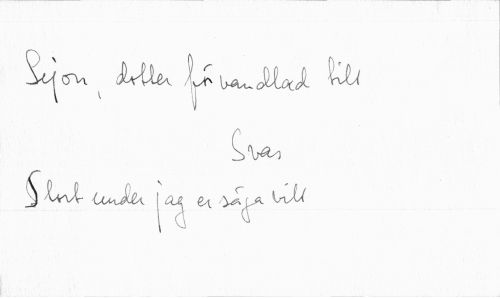 Sejon, dotter förvandlad till
Svar
Stort under jag er säga vill